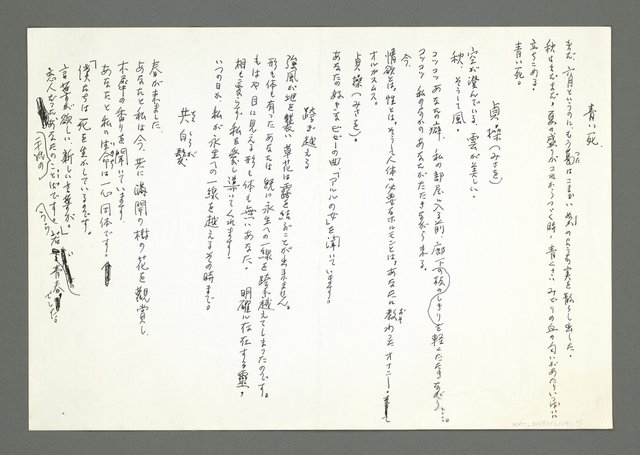 青い死
まだ六月というのに もう蔦は こまかい
の実を散らし出した。
秋はまだまだ、夏の盛りが これからつづく時、青くさい みどりの血の匂いがあたりいっぱいに
立ちこめる。
青い死。
貞操(みさを)
空が澄んでいる、雲が美しい。
秋、そうして風。
コツコツ あなたの癖、私の部屋に入る前、廊下の板のしきりを軽くたたきながら…。
今、コツコツ 私の
あなたのせがたたきながら来る。
情欲とは、性とは、そうして人体に必要なホルモンとは、あなたに教わったオナニー。
オルガスムス。
貞操(みさを)。
あなたの好きなビゼーの曲「アルルの女」を聞いています。
踏み越える
強風が地を襲い 草花は露を結ぶことが出来ません。
形も体も有ったあなたは 既に永生への一線を踏み越えてしまったのです。
もはや目に見える形も体も無いあなた。 明確に存在する霊、
相も変らず 私を愛し導いてくれます。
いつの日か 私が永生への一線を越えるその時まで。
共白髪
春が来ました
あなたと私は今、共に満開の樹の花を観賞し
木犀の香りを聞いています。
あなたと私の生命は一心同体です。
「僕たちは死を生かしているのです。
言葉が欲しい、新しい言葉が」
恋人だったあなたのことばでした。
若い青春でした